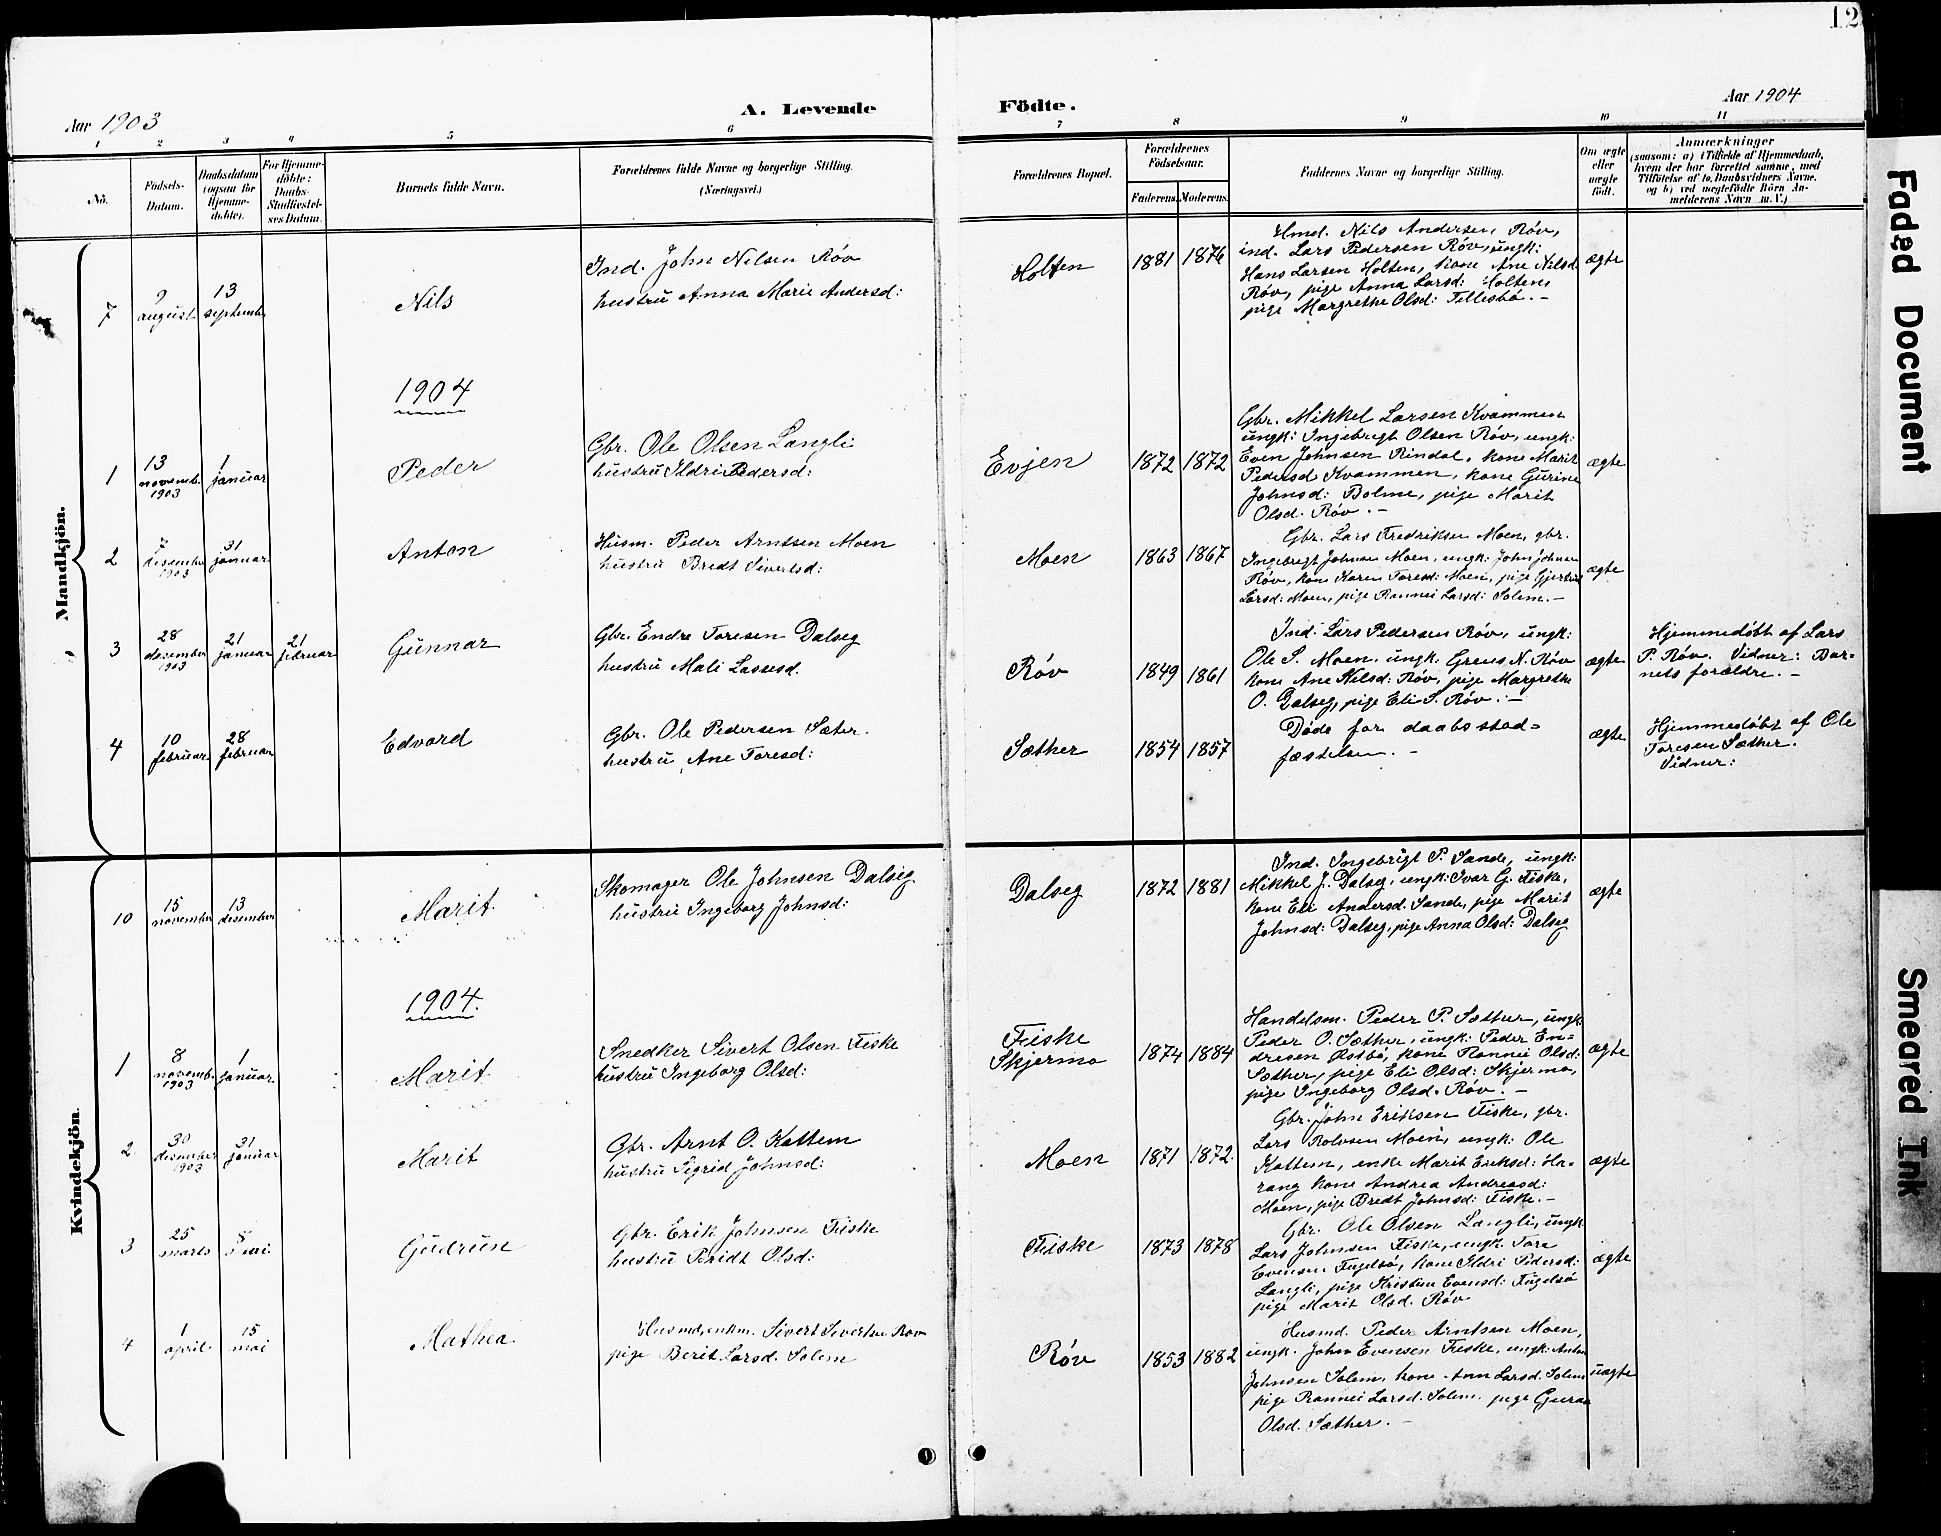 12
Aar 1903
A. Levende
Födte.
Aar 1904
1 2 3 4 5 6 7 8 9 10 11
No.
Födsels-
Datum.
Daabsdatum
(ogsaa for
Hjemme-
döbte).
For Hjemme-
döbte:
Daabs-
Stadfæstel-
ses Datum.
Barnets fulde Navn.
Forældrenes fulde Navne og borgerlige Stilling.
(Næringsvei.)
Forældrenes Bopæl.
Forældrenes
Födselsaar.
Faderens. Moderens.
Faddernes Navne og borgerlige Stilling.
Om ægte
eller
uægte
födt.
Anmærkninger
(saasom: a) i Tilfælde af Hjemmedaab,
hvem der har forrettet samme, med
Tilföielse af to Daabsvidners Navne,
og b) ved uægtefödte Börn An-
melderens Navn m. V.)
Mandkjön.
7
9
august
13
septemb.
Nils
Ind. John Nilsen Röv
hustru Anna Marie Andersd:
Holten
1881 1876
Hmd. Nils Andersen, Röv,
ind. Lars Pedersen Röv, ungk:
Hans Larsen Holten, kone Ane Nilsd.
Röv, pige Anna Larsd: Holten,
pige Margrethe Olsd: Tellesbö. –
ægte
1904
1
13
novemb.
1903
1
januar
Peder
Gbr. Ole Olsen Langli
hustru Ildri Pedersd:
Evjen
1872 1872
Gbr. Mikkel Larsen Kvammen
ungk: Ingebrigt Olsen Röv, ungk:
Even Johnsen Rindal, kone Marit
Pedersd Kvammen, kone Gurine
Johnsd: Bolme, pige Marit
Olsd. Röv. –
ægte
2
7
desember
1903
31
januar
Anton
Husm. Peder Arntsen Moen
hustru Bredt Sivertsd:
Moen
1863 1867
Gbr. Lars Fredriksen Moen, gbr.
Ingebrigt Johnsen Moen, ungk: John Johnsen
Röv, kone Karen Toresd: Moen, pige Gjertrud
Larsd: Moen, pige Rannei Larsd: Solem. –
ægte
3
28
desember
1903
21
januar
21
februar
Gunnar
Gbr. Endre Toresen Dalseg
hustru Mali Lassesd.
Röv
1849 1861
Ind. Lars Pedersen Röv, ungk:
Ole S. Moen, ungk. Grens N. Röv
kone Ane Nilsd: Röv, pige Margrethe
O. Dalseg, pige Eli S. Röv. –
ægte
Hjemmedöbt af Lars
P. Röv. Vidner: Bar-
nets forældre. –
4
10
februar
28
februar
Edvard
Gbr. Ole Pedersen Sæter.
hustru Ane Toresd:
Sæther
1854 1857
Döde för daabsstad-
fæstelsen. –
ægte
Hjemmedöbt af Ole
Toresen Sæther.
Vidner:
Kvindekjön.
10
15
november
13
desember
Marit
Skomager Ole Johnsen Dalseg
hustru Ingeborg Johnsd:
Dalseg
1872 1881
Ind. Ingebrigt P. Sande, ungk:
Mikkel J. Dalseg, ungk: Ivar G. Fiske,
kone Eli Andersd. Sande, pige Marit
Johnsd: Dalseg, pige Anna Olsd: Dalseg
ægte
1904.
1
8
novemb.
1903
1
januar
Marit
Snedker Sivert Olsen Fiske
hustru Ingeborg Olsd:
Fiske
Skjermo
1874 1884
Handelsm. Peder P. Sæther, ungk.
Peder O. Sæther, ungk: Peder En-
dresen Östbö, kone Rannei Olsd:
Sæther, pige Eli Olsd: Skjermo,
pige Ingeborg Olsd. Röv. –
ægte
2
30
desember
1903
31
januar
Marit
Gbr. Arnt O. Kattem
hustru Sigrid Johnsd:
Moen
1871 1872
Gbr. John Eriksen Fiske, gbr.
Lars Rolvsen Moen, ungk: Ole
Kattem, enke Marit Eriksd: Ha-
rang kone Andrea Andreasd:
Moen, pige Bredt Johnsd: Fiske. –
ægte
3
25
marts
Gudrun
Gbr. Erik Johnsen Fiske
hustru Bridt Olsd:
Fiske
1873 1878
Gbr. Ole Olsen Langli, ungk
Lars Johnsen Fiske, ungk. Tore
Evensen Fugelsö, kone Ildri Pedersd:
Langli, pige Kristine Evensd: Fugelsö
pige Marit Olsd. Röv
ægte
4
1
april
15
mai
Mathea
Husmd, enkm. Sivert Sivertsen Röv
pige Berit Larsd. Solem
Röv
1853 1882
Husmd. Peder Arntsen Moen,
ungk. John Evensen Fiske, ungk: Anton
Johnsen Solem, kone Ann Larsd. Solem
pige Rannei Larsd. Solem. pige Guraa
Olsd. Sæther. –
uægte
Faded Document
Smeared Ink